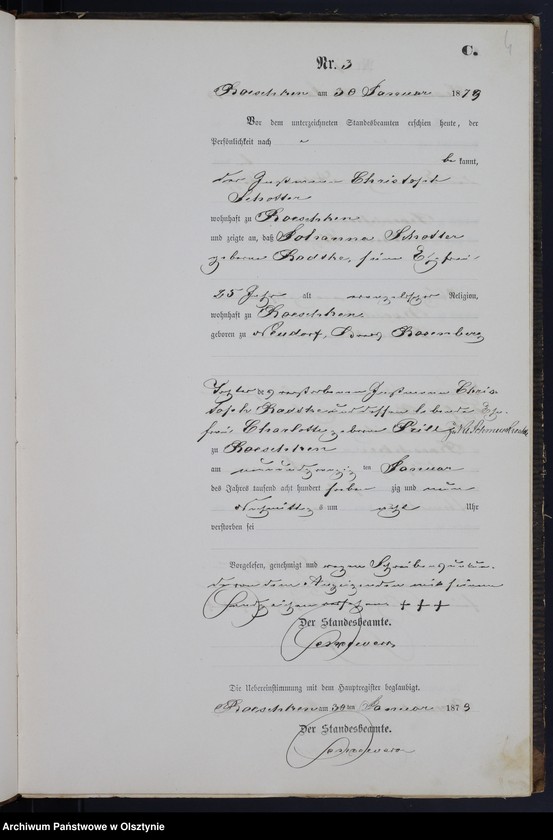 C.
4
Nr. 3
Roeschken am 30 Januar 1879
Vor dem unterzeichneten Standesbeamten erschien heute, der
Persönlichkeit nach
be kannt,
der Instmann Christoph
Schotter
wohnhaft zu Roeschken
und zeigte an, daß Johanna Schotter
geborne Radtke, seine Ehefrau
25 Jahr alt evangelischer Religion,
wohnhaft zu Roeschken
geboren zu Neudorf, Rosenberg
Tochter des verstorbenen Instmann Chris-
toph Radtke und dessen lebende Ehe-
frau Charlotte geborne Prill
zu Roeschken
am neunundzwanzig ten Januar
des Jahres tausend acht hundert sieben zig und neun
Nachmittags um acht Uhr
verstorben sei
Vorgelesen, genehmigt und wegen Schreibensunkun-
de von dem Anzeigenden mit seinem
Handzeichen versehen + + +
Der Standesbeamte.
Die Uebereinstimmung mit dem Hauptregister beglaubigt.
Roeschken am 30 ten Januar 1879
Der Standesbeamte.
Archiwum Państwowe w Olsztynie